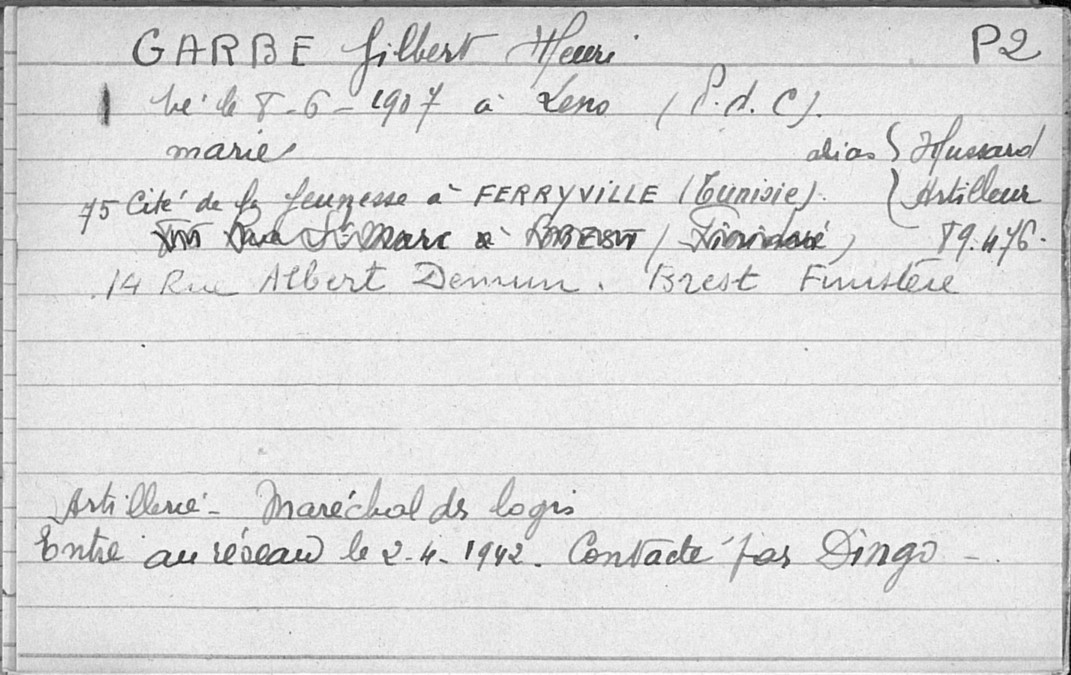 GARBE Gilbert Henri P2
né le 8-6-1907 à Lens (P.d.C).
marié alias { Hussard
75 Cité de la Jeunesse à FERRYVILLE (Tunisie). Artilleur
Rue St Marc à BREST (Finistère) 89.476.
14 Rue Albert Demun. Brest Finistère
Artillerie - Maréchal des logis
Entré au réseau le 2-4-1942. Contacté par Dingo -